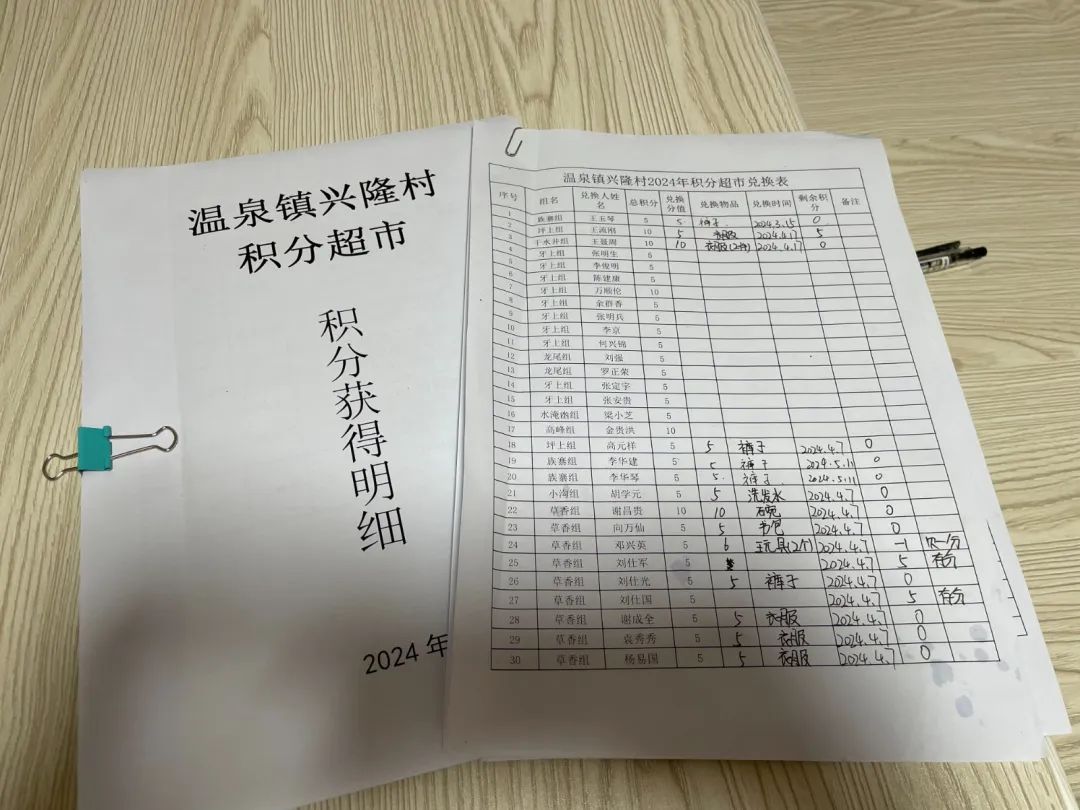 温泉镇兴隆村
积分超市
积分获得明细
2024 年
温泉镇兴隆村2024年积分超市兑换表
序号 组名 兑换人姓名 总积分 兑换分值 兑换物品 兑换时间 剩余积分 备注
1 族寨组 王玉琴 5 5 裤子 2024.3.15 0
2 坪上组 王流刚 10 5 衣服 2024.4.17 5
3 干水井组 王显周 10 10 衣服(2件) 2024.4.17 0
4 牙上组 张明生 5
5 牙上组 李俊明 5
6 牙上组 陈建康 5
7 牙上组 万顺伦 10
8 牙上组 余群香 5
9 牙上组 张明兵 5
10 牙上组 李京 5
11 牙上组 何兴锦 5
12 龙尾组 刘强 5
13 龙尾组 罗正荣 5
14 牙上组 张定宇 5
15 牙上组 张安贵 5
16 水淹凼组 梁小芝 5
17 高峰组 金贵洪 10
18 坪上组 高元祥 5 5 裤子 2024.4.7 0
19 族寨组 李华建 5 5 裤子 2024.5.11 0
20 族寨组 李华琴 5 5 裤子 2024.5.11 0
21 小湾组 胡学元 5 5 洗发水 2024.4.7 0
22 草香组 谢昌贵 10 10 碗 2024.4.7 0
23 草香组 向万仙 5 5 书包 2024.4.7 0
24 草香组 邓兴英 5 6 玩具(2个) 2024.4.7 -1 欠一分
25 草香组 刘仕军 5 2024.4.7 5 存分
26 草香组 刘仕光 5 5 裤子 2024.4.7 0
27 草香组 刘仕国 5 2024.4.7 5 存分
28 草香组 谢成全 5 5 衣服 2024.4.7 0
29 草香组 袁秀秀 5 5 衣服 2024.4.7 0
30 草香组 杨易国 5 5 衣服 2024.4.7 0